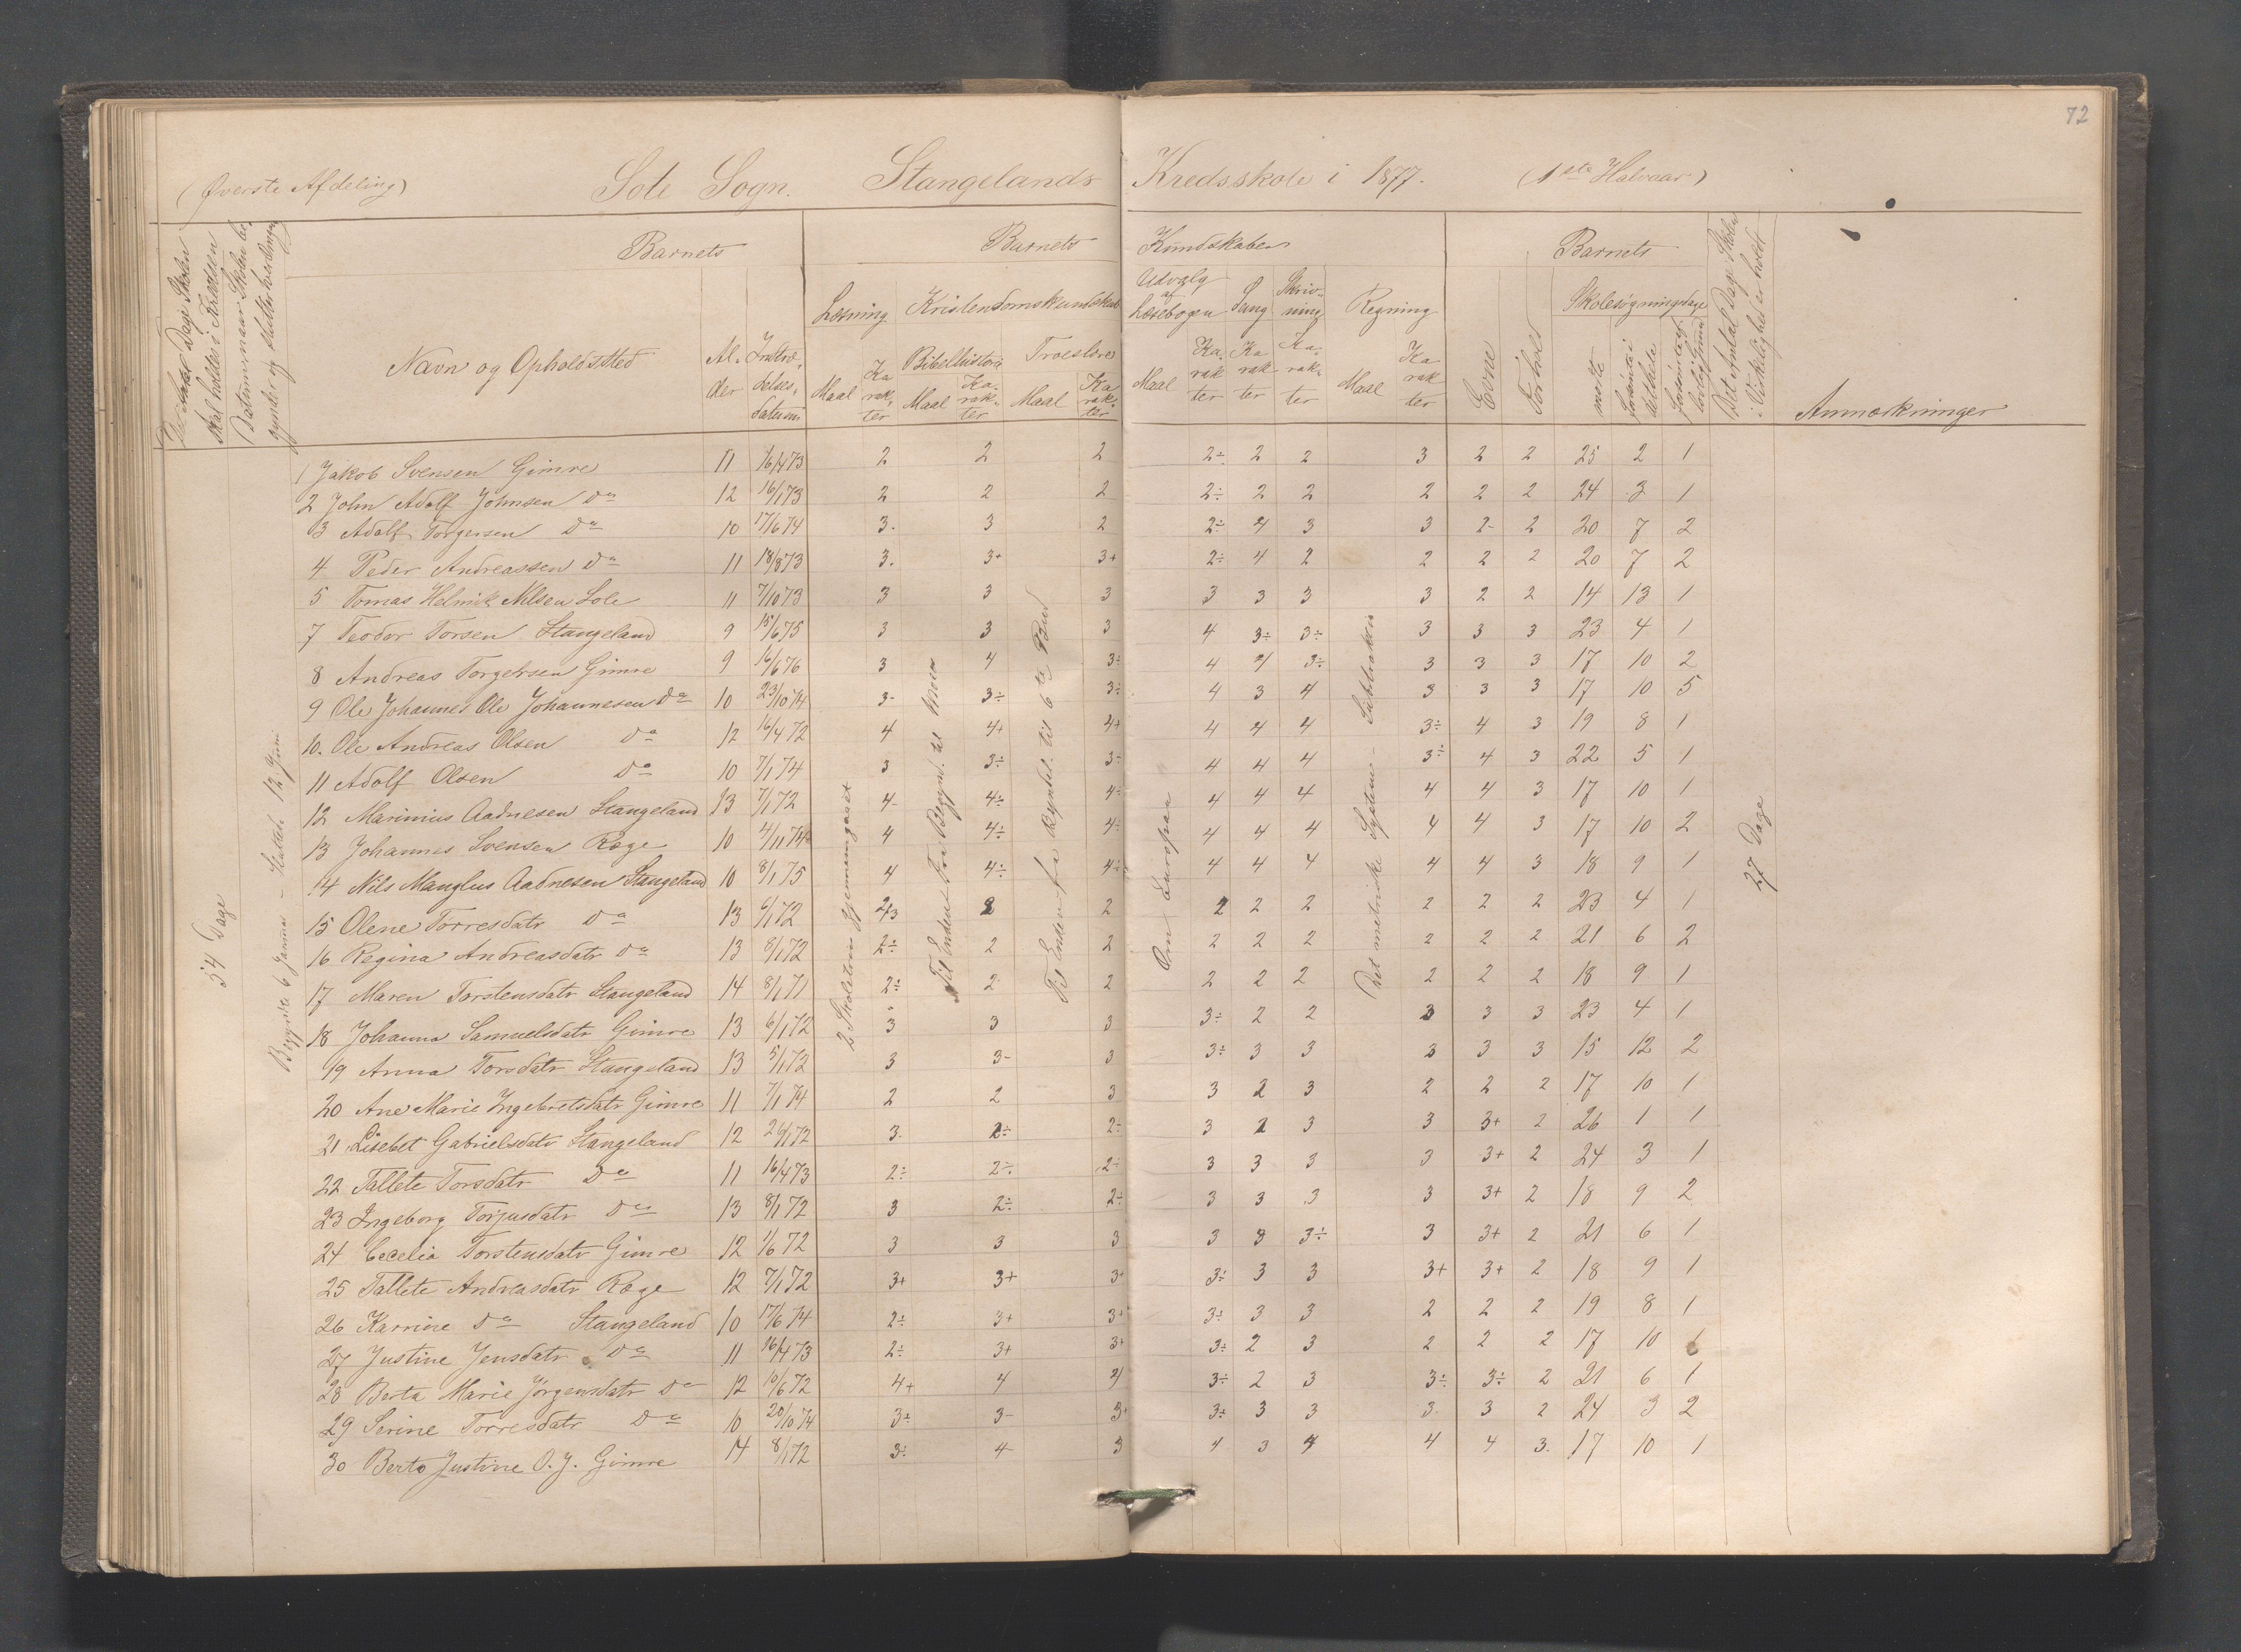 72
(Øverste Afdeling) Sole Sogn. Stangelands Kredsskole i 1877. (1ste Halvaar)
Barnets Barnets Kundskaber Barnets
Det Antal Dage Skolen skal holdes i Kredsen
Datum, naar Skolen begynder og slutter
Navn og Opholdssted
Alder
Indtrædelsesdatum
Læsning Kristendomskundskab
Bibelhistorie Troeslære
Maal Karakter Maal Karakter Maal Karakter
Udvalg af Læsebogen Sang Skrivning Regning
Maal Karakter Karakter Karakter Maal Karakter
Evne Forhold
Skolesøgningsdage
mødte
forsømte i det hele
forsømte af lovlig Grund
Det Antal Dage Skolen i Virkelighed er holdt
Anmærkninger
54 Dage
Begyndte 6 Januar - Sluttede 12 Juni
2 Skoletrin gjennemgaaet
Om Europa
Det metriske System - Subtraktion
27 Dage
1 Jakob Svensen Gimre 11 16/4 73 2 2 2 2÷ 2 2 3 2 2 25 2 1
2 John Adolf Johnsen do 12 16/1 73 2 2 2 2÷ 2 2 2 2 2 24 3 1
3 Adolf Torgersen do 10 17/6 74 3- 3 2 2÷ 4 3 3 2- 2 20 7 2
4 Peder Andreassen do 11 18/8 73 3. 3+ 3+ 2÷ 4 2 2 2 2 20 7 2
5 Tomas Helmik Nilsen Sole 11 7/10 73 3 3 3 3 3 3 3 2 2 14 13 1
7 Teodor Torsen Stangeland 9 15/6 75 3 3 3 4 3÷ 3÷ 3 3 3 23 4 1
8 Andreas Torgersen Gimre 9 16/6 76 3 4 3÷ 4 4 3÷ 3 3 3 17 10 2
9 Ole Johannes Ole Johannesen do 10 23/10 74 3- 3÷ 3÷ 4 3 4 3 3 3 17 10 5
10. Ole Andreas Olsen do 12 16/4 72 4 4+ 4+ 4 4 4 3÷ 4 3 19 8 1
11 Adolf Olsen do 10 7/1 74 3 3÷ 3÷ 4 4 4 3÷ 4 3 22 5 1
12 Marinius Aadnesen Stangeland 13 7/1 72 4- 4÷ 4÷ 4 4 4 4 4 3 17 10 1
13 Johannes Svensen Ræge 10 4/11 74 4 4÷ 4÷ 4 4 4 4 4 3 17 10 2
14 Nils Manglus Aadnesen Stangeland 10 8/1 75 4 4÷ 4÷ 4 4 4 4 4 3 18 9 1
15 Olene Torresdatr do 13 6/1 72 2/3 2 2 2 2 2 2 2 2 23 4 1
16 Regina Andreasdatr do 13 8/1 72 2÷ 2 2 2 2 2 2 2 2 21 6 2
17 Maren Torstensdatr Stangeland 14 8/1 71 2÷ 2 2 2 2 2 2 2 2 18 9 1
18 Johanna Samuelsdatr Gimre 13 6/1 72 3 3 3 3÷ 2 2 3 3 3 23 4 1
19 Anna Torsdatr Stangeland 13 5/1 72 3 3- 3 3÷ 3 3 3 3 3 15 12 2
20 Ane Marie Ingebretsdatr Gimre 11 7/1 74 2 2 3 3 2 3 2 2 2 17 10 1
21 Lisebet Gabrielsdatr Stangeland 12 26/1 72 3- 2÷ 2÷ 3 2 3 3 3+ 2 26 1 1
22 Tallete Torsdatr do 11 16/4 73 2÷ 2÷ 2÷ 3 3 3 3 3+ 2 24 3 1
23 Ingeborg Torjusdatr do 13 8/1 72 3 2÷ 2÷ 3 3 3 3 3+ 2 18 9 2
24 Cecelia Torstensdatr Gimre 12 1/6 72 3 3 3 3 3 3÷ 3 3+ 2 21 6 1
25 Tallete Andreasdatr Ræge 12 7/1 72 3+ 3+ 3+ 3÷ 3 3 3+ 3+ 2 18 9 1
26 Karrine do Stangeland 10 17/6 74 2÷ 3+ 3+ 3÷ 3 3 2 2 2 19 8 1
27 Justine Jensdatr do 11 16/4 73 2÷ 3+ 3+ 3÷ 2 3 2 2 2 17 10 1
28 Berta Marie Jörgensdatr do 12 10/6 72 4+ 4 4 3÷ 2 3 3÷ 3÷ 2 21 6 1
29 Serine Torresdatr do 10 20/10 74 3÷ 3- 3+ 3÷ 3 3 3. 3 2 24 3 2
30 Berto Justine O. J. Gimre 14 8/1 72 3÷ 4 3 4 3 4 4 4 3. 17 10 1